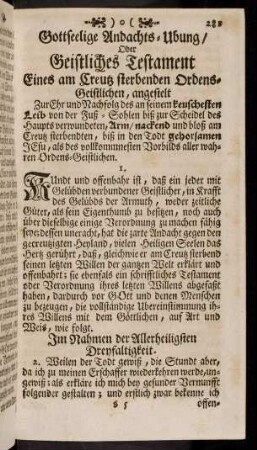 )o( 
Gottseelige Andachts-Ubung/
Oder
Geistliches Testament
Eines am Creutz sterbenden Ordens-
Geistlichen, angestelt
Zur Ehr und Nachfolg des an seinem keuschesten
Leib von der Fuß-Sohlen biß zur Scheidel des
Haupts verwundeten, Arm/ nackend und bloß am
Creutz sterbendten, biß in den Todt gehorsamen
JEsu, als des vollkommnesten Vorbilds aller wah-
ren Ordens-Geistlichen.
1.
Kundt und offenbahr ist, daß ein jeder mit
Gelübden verbundener Geistlicher, in Krafft
des Gelübds der Armuth, weder zeitliche
Güter, als sein Eigenthumb zu besitzen, noch auch
über dieselbige einige Verordnung zu machen fähig
seye: dessen uneracht, hat die zarte Andacht gegen den
gecreutzigten Heyland, vielen Heiligen Seelen das
Hertz gerührt, daß, gleichwie er am Creutz sterbend
seinen letzten Willen der gantzen Welt erklärt und
offenbahrt: sie ebenfals ein schrifftliches Testament
oder Verordnung ihres letzten Willens abgefaßt
haben, dardurch vor GOtt und denen Menschen
zu bezeugen, die vollständige Ubereinstimmung ih-
res Willens mit dem Göttlichen, auf Art und
Weis, wie folgt.
Im Nahmen der Allerheiligsten
Dreyfaltigkeit.
2. Weilen der Todt gewiß, die Stundt aber,
da ich zu meinen Erschaffer wiederkehren werde, un-
gewiß: als erkläre ich mich bey gesunder Vernunfft
folgender gestalten; und erstlich zwar bekenne ich
S 5 offen-